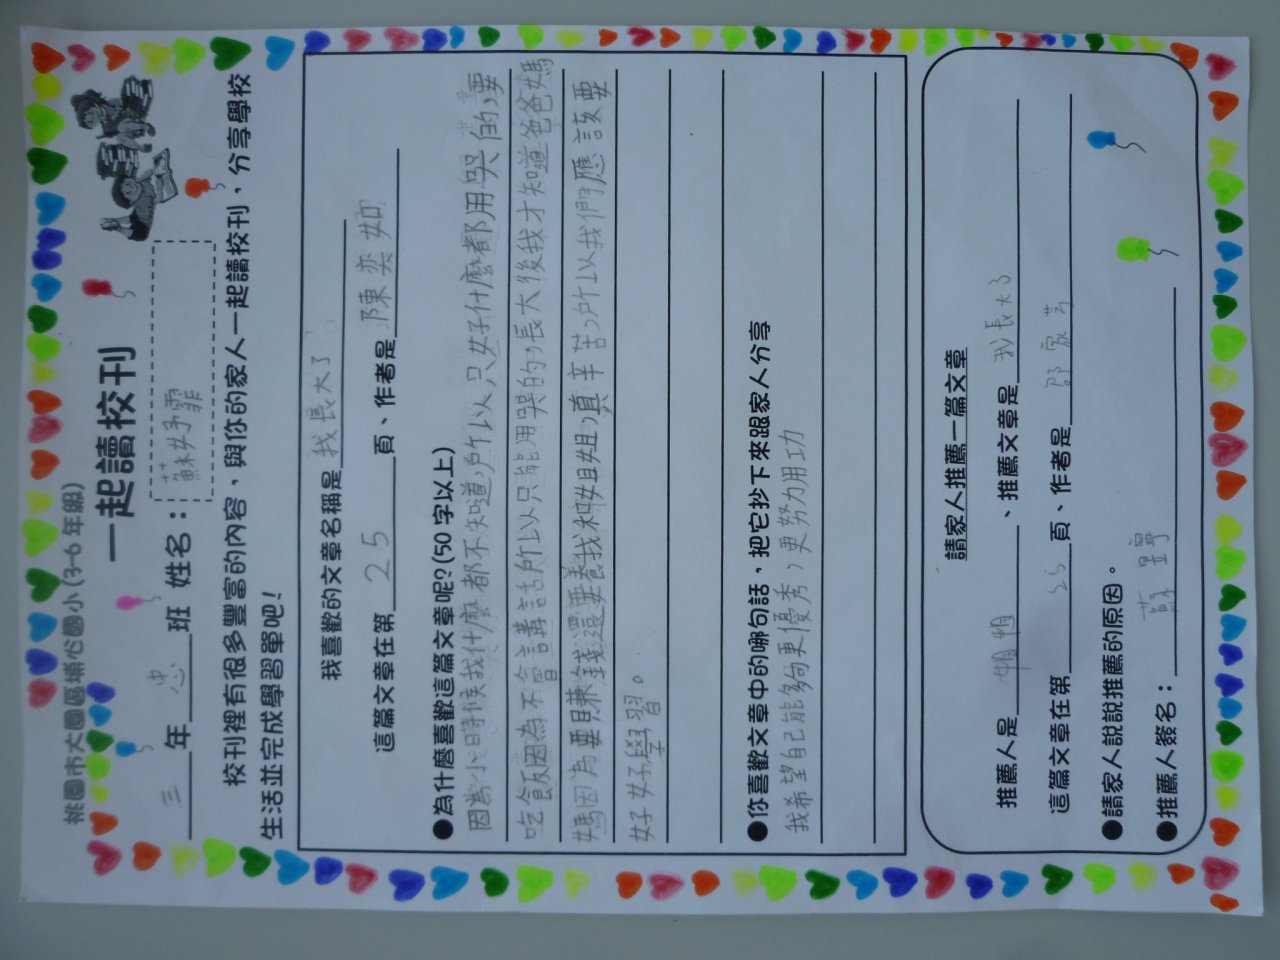 桃園市大園區埔心國小(3-6年級)
一起讀校刊
三年忠班 姓名：蘇妤霏
校刊裡有很多豐富的內容，與你的家人一起讀校刊，分享學校
生活並完成學習單吧！
我喜歡的文章名稱是我長大了
這篇文章在第25頁、作者是陳奕如
●為什麼喜歡這篇文章呢？(50字以上)
因為小時候我什麼都不知道，所以，只好什麼都用哭的，要
吃飯因為不會講話所以只能用哭的，長大後我才知道爸爸媽
媽因為要賺錢還要養我和姐姐，真辛苦，所以我們應該要
好好學習。
●你喜歡文章中的哪句話，把它抄下來跟家人分享
我希望自己能夠更優秀，更努力用功
請家人推薦一篇文章
推薦人是姐姐、推薦文章是我長大了
這篇文章在第25頁、作者是
●請家人說說推薦的原因。
●推薦人簽名：蘇